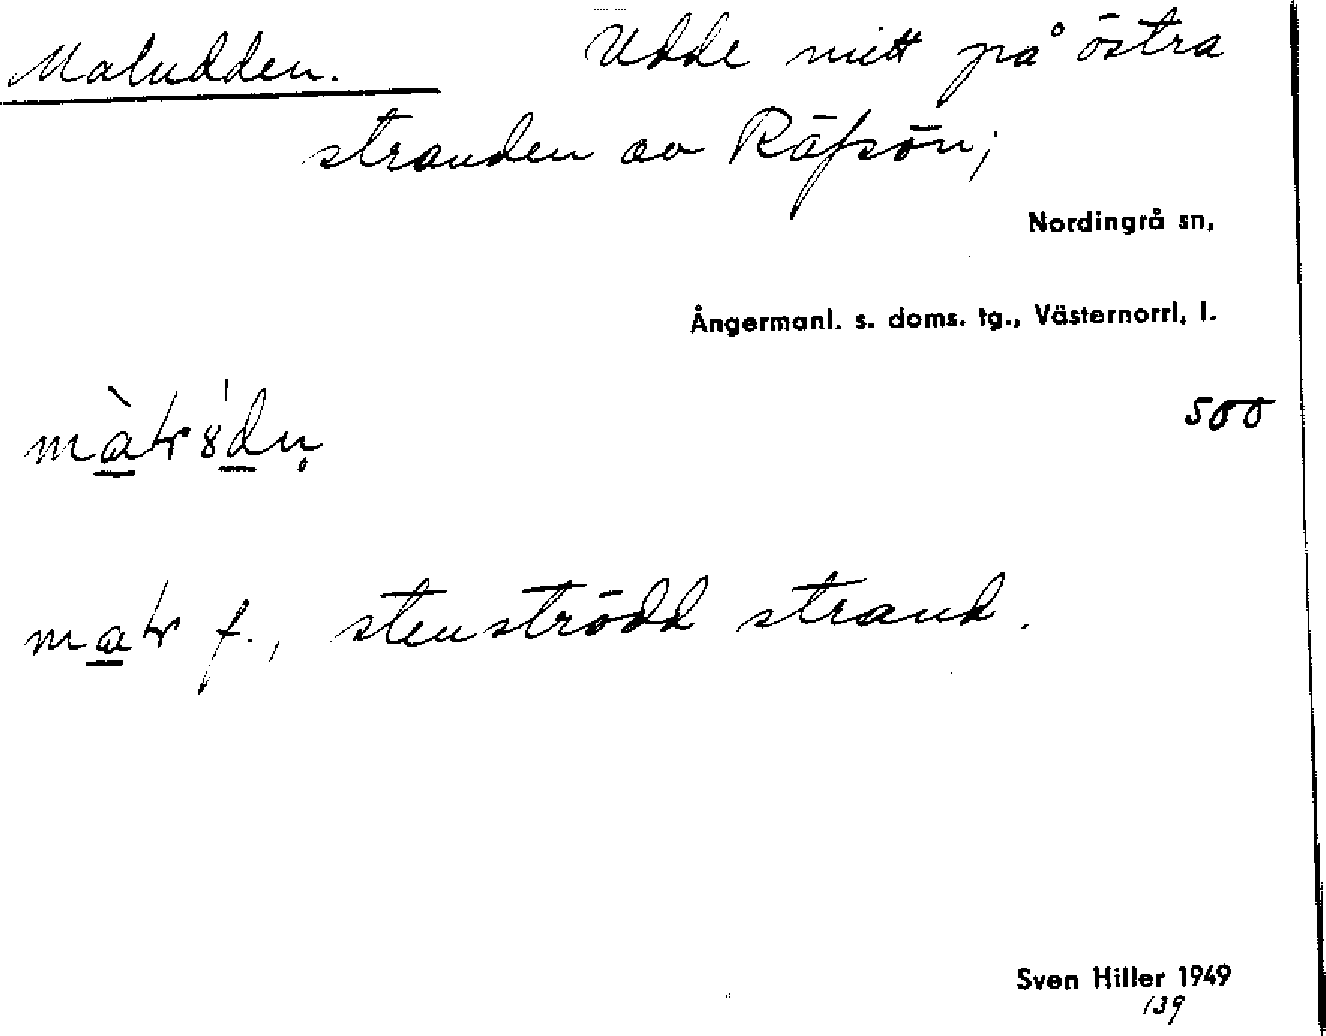 Maludden. Udde mitt på östra
stranden av Räfsön;
Nordingrå sn,
Ångermanl. s. doms. tg., Västernorrl. l.
500
stenströdd strand.
Sven Hiller 1949
139